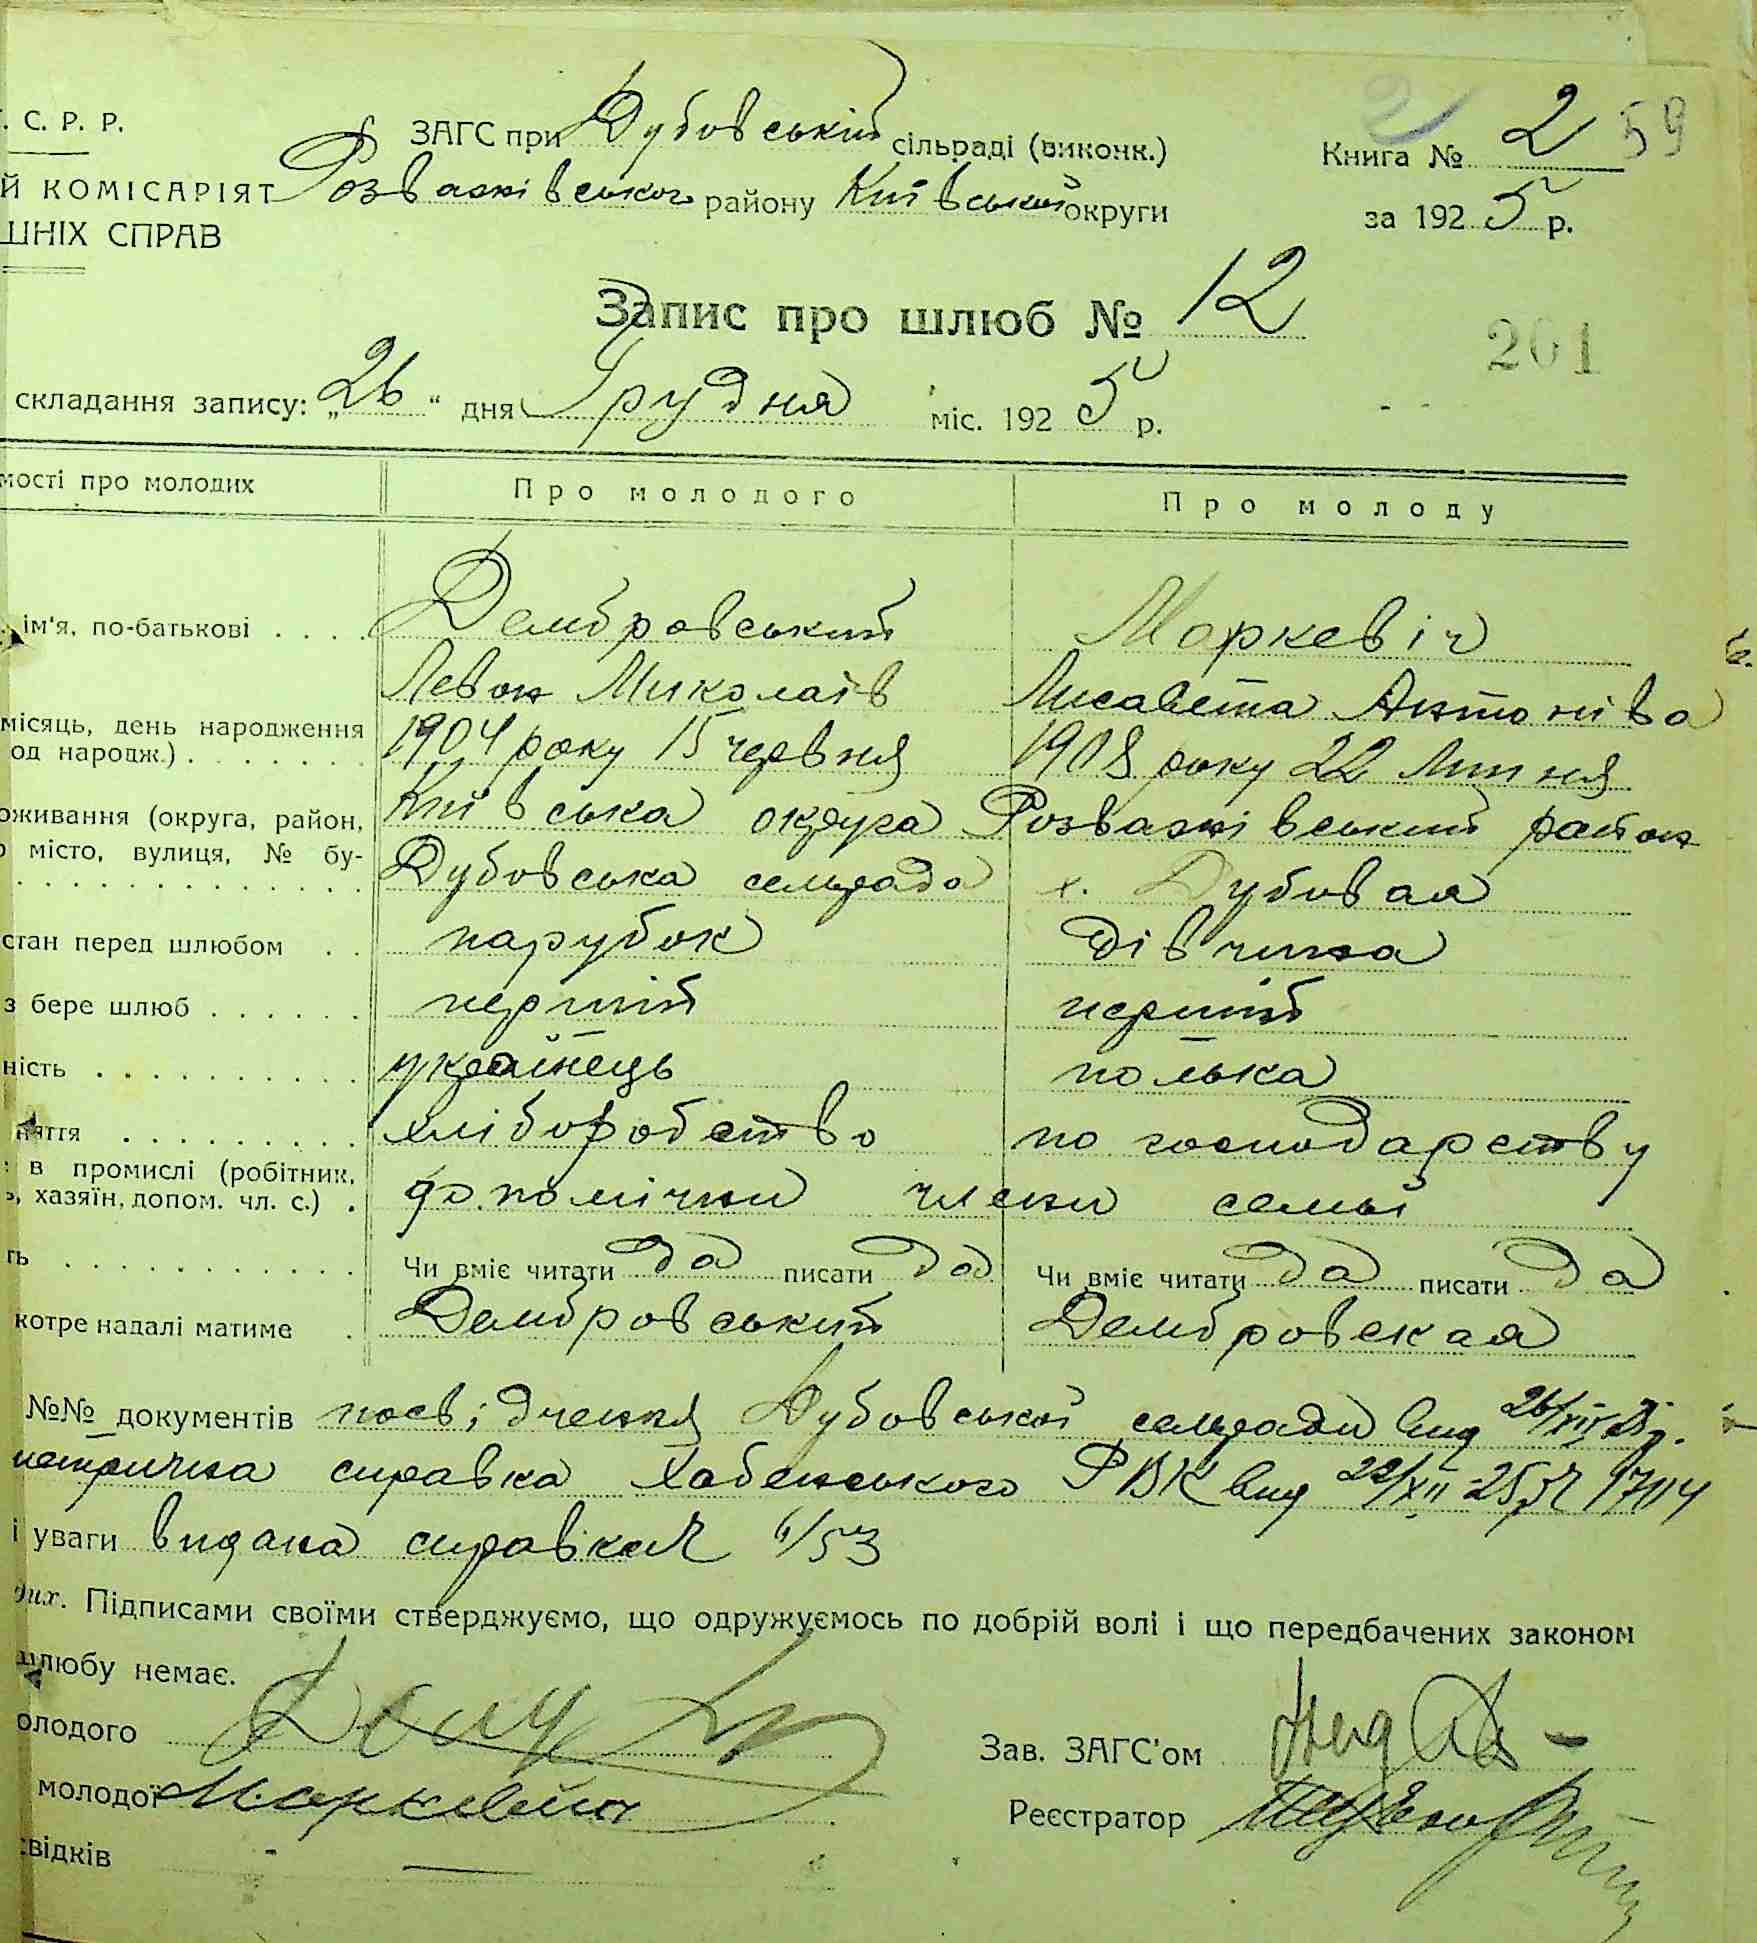 . С. Р. Р.
ЗАГС при Дубовській сільраді (виконк.)
Книга № 2 59
Й КОМІСАРІЯТ Розважівського району Київської округи
за 1925 р.
ШНІХ СПРАВ
Запис про шлюб № 12
201
складання запису: „26“ дня Грудня міс. 1925 р.
мості про молодих Про молодого Про молоду
ім'я, по-батькові . . . . Дембровський Маркевіч
Левон Миколаїв Лисавета Антонієва
місяць, день народження
од народж.) . . . . . . . 1904 року 15 червня 1908 року 22 Липня
оживання (округа, район, Київська округа Розважівський район
місто, вулиця, № бу-
Дубовська сельрада х. Дубовая
стан перед шлюбом . . парубок дівчина
з бере шлюб . . . . . . перший перший
ність . . . . . . . . . . українець полька
няття . . . . . . . . . хліборобство по господарству
в промислі (робітник,
ь, хазяїн, допом. чл. с.) . допомічни члени семьї
ть . . . . . . . . . . . . Чи вміє читати да писати да Чи вміє читати да писати да
котре надалі матиме . Дембровський Дембровская
№№ документів посвідчення Дубовської сельради вид 26/XII 25 р.
метрична справка Хабенського РВК вид 22/XII-25 р. №
і уваги видана справка № 6/53
дих. Підписами своїми стверджуємо, що одружуємось по добрій волі і що передбачених законом
шлюбу немає.
олодого
Зав. ЗАГС'ом
молодої Маркевич
Реєстратор
свідків —